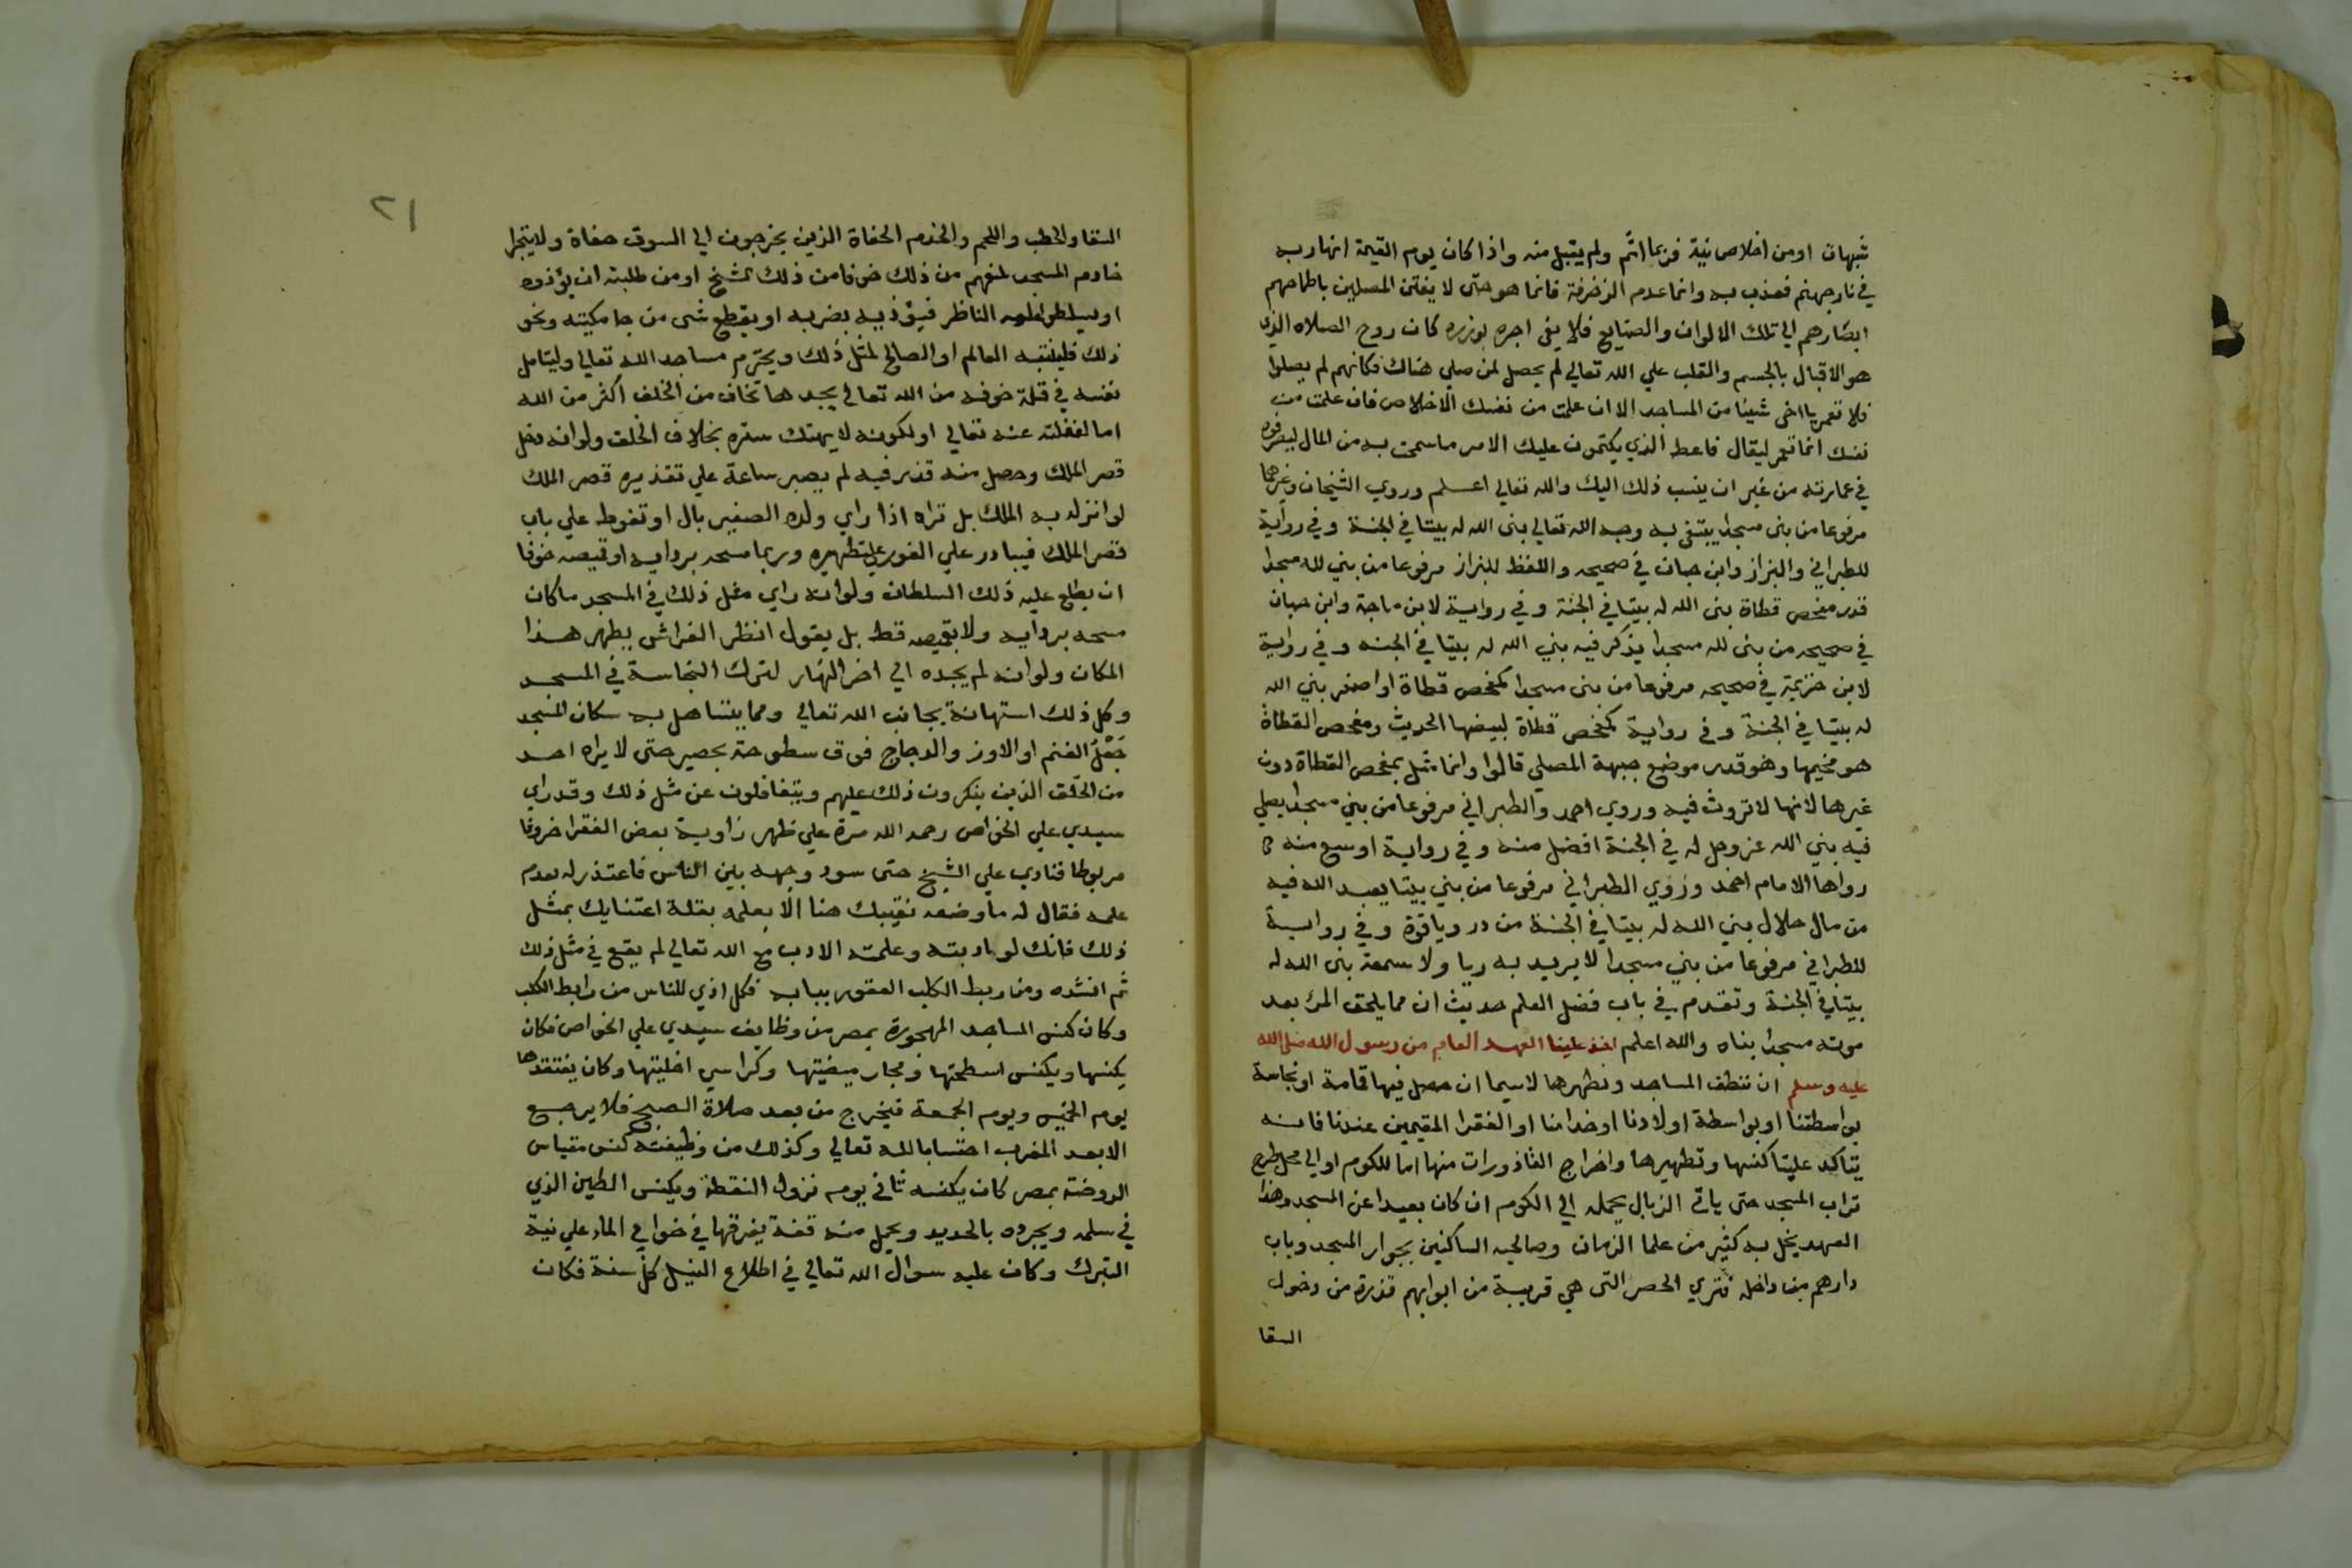 شبهات او من اخلاص نية فربما اثم ولم يتقبل منه واذا كان يوم القيمة انهار به
في نار جهنم فعذب به وانما عدم الزخرفة فانما هو حتى لا يفتتن المصلين باطماحهم
ابصارهم الي تلك الالوان والصنايع فلا يفي اجره بوزره كان روح الصلاه الذي
هو الاقبال بالجسم والقلب علي الله تعالي لم يحصل لمن صلي هناك فكانهم لم يصلوا
فلا تعمر يا اخي شيئا من المساجد الا ان علمت من نفسك الاخلاص فان علمت من
نفسك انما تعمر ليقال فاعط الذي يكتمون عليك الامر ما سمحت به من المال ليصرفوه
في عمارته من غير ان ينسب ذلك اليك والله تعالي اعلم وروي الشيخان وغيرهما
مرفوعا من بنى مسجدا يبتغي به وجه الله تعالي بنى الله له بيتا في الجنة وفي رواية
للطبراني والبزاز وابن حبان في صحيحه واللفظ للبزاز مرفوعا من بني لله مسجدا
قدر مفحص قطاة بنى الله له بيتا في الجنة وفي رواية لابن ماجة وابن حبان
في صحيحه من بنى لله مسجدا يذكر فيه بني الله له بيتا في الجنه وفي رواية
لابن خزيمة في صحيحه مرفوعا من بنى مسجدا كمفحص قطاة او اصغر بني الله
له بيتا في الجنة وفي رواية كمفحص قطاة لبيضها الحديث ومفحص القطاة
هو مخيمها وهو قدر موضع جبهة المصلي قالوا وانما مثل بمفحص القطاة دون
غيرها لانها لا تروث فيه وروي احمد والطبراني مرفوعا من بني مسجدا يصلي
فيه بني الله عز وجل له في الجنة افضل منه وفي رواية اوسع منه
رواها الامام احمد وروي الطبراني مرفوعا من بني بيتا يعبد الله فيه
من مال حلال بني الله له بيتا في الجنة من در وياقوة وفي رواية
للطبراني مرفوعا من بني مسجدا لا يريد به ريا ولا سمعة بنى الله له
بيتا في الجنة وتقدم في باب فضل العلم حديث ان مما يلحق المرء بعد
موته مسجدا بناه والله اعلم اخذ علينا العهد العام من رسول الله صلى الله
عليه وسلم ان ننظف المساجد ونطهرها لاسيما ان حصل فيها قمامة او نجاسة
بواسطتنا او بواسطة اولادنا او خدامنا او الفقرا المقيمين عندنا فانه
يتاكد علينا كنسها وتطهيرها واخراج القاذورات منها اما للكوم او الي محل طرح
تراب المسجد حتى ياتي الزبال يحمله الي الكوم ان كان بعيدا عن المسجد وهذا
العهد يخل به كثير من علما الزمان وصالحيه الساكنين بجوار المسجد وباب
دارهم من داخله فتري الحصر التي هي قريبة من ابوابهم قذرة من دخول
السقا
٢١
السقا والحطب واللحم والخدم الحفاة الذين يخرجون الي السوق حفاة ولا يتجرا
خادم المسجد لمنعهم من ذلك خوفا من ذلك الشيخ او من طلبته ان يؤذوه
او يسلطوا عليه الناظر فيؤذيه بضربه او يقطع شي من جامكيته ونحو
ذلك فلينتبه العالم او الصالح لمثل ذلك ويحترم مساجد الله تعالي وليتامل
نفسه في قلة خوفه من الله تعالي يجدها تخاف من الخلق اكثر من الله
اما لغفلته عنه تعالي او لكونه لا يهتك ستره بخلاف الخلق ولو انه دخل
قصر الملك وحصل منه قذر فيه لم يصبر ساعة علي تقذيره قصر الملك
لو انزله به الملك بل تراه اذا راي ولده الصغير بال او تغوط علي باب
قصر الملك فيبادر علي الفور علي تطهيره وربما مسحه بردايه او قميصه خوفا
ان يطلع عليه ذلك السلطان ولو انه راي مثل ذلك في المسجد ما كان
مسحه بردايه ولا بقميصه قط بل يقول انظر الفراش يطهر هذا
المكان ولو انه لم يجده الي اخر النهار لترك النجاسة في المسجد
وكل ذلك استهانة بجانب الله تعالي ومما يتساهل به سكان المسجد
جعل الغنم او الاوز والدجاج فوق سطوحه بحصير حتى لا يراه احد
من الخلق الذين ينكرون ذلك عليهم ويتغافلون عن مثل ذلك وقد راي
سيدي علي الخواص رحمه الله مرة علي ظهر زاوية بعض الفقرا خروفا
مربوطا فنادي علي الشيخ حتى سود وجهه بين الناس فاعتذر له بعدم
علمه فقال له ما وضعه نقيبك هنا الا بعلمه بقلة اعتنايك بمثل
ذلك فانك لو ادبته وعلمته الادب مع الله تعالي لم يقع في مثل ذلك
ثم انشده ومن ربط الكلب العقور ببابه فكل اذي للناس من رابط الكلب
وكان كنس المساجد المهجورة بمصر من وظايف سيدي علي الخواص فكان
يكنسها ويكنس اسطحتها ومجار ميضيتها وكراسي اخليتها وكان يفتقدها
يوم الخميس ويوم الجمعة فيخرج من بعد صلاة الصبح فلا يرجع
الا بعد المغرب احتسابا لله تعالي وكذلك من وظيفته كنس مقياس
الروضة بمصر كان يكنسه ثاني يوم نزول النقطة ويكنس الطين الذي
في سلمه ويجرده بالحديد ويحمل منه قفة يفرقها في خوابي الماء علي نية
التبرك وكان عليه سوال الله تعالي في اطلاع النيل كل سنة فكان